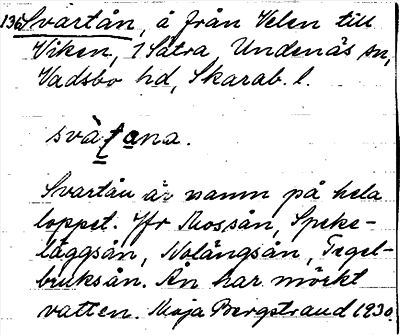 136 Svartån, å från Velen till
Viken, 1 Sätra, Undenäs sn,
Vadsbo hd, Skarab. l.
svàʈana.
Svartån är namn på hela
loppet. Jfr Mossån, Speke-
läggsån, Nolångsån, Tegel-
bruksån. Ån har mörkt
vatten. Maja Bergstrand 1930.